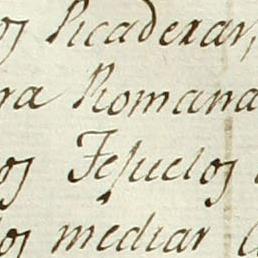 os Picaderar,
ra Romana
os Fesuelos
los mediar